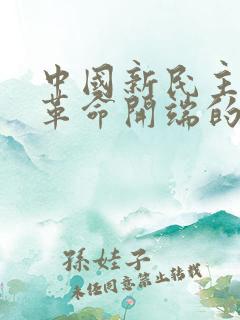 中國新民主
革命開端的
孫娃子
未经同意禁止转载